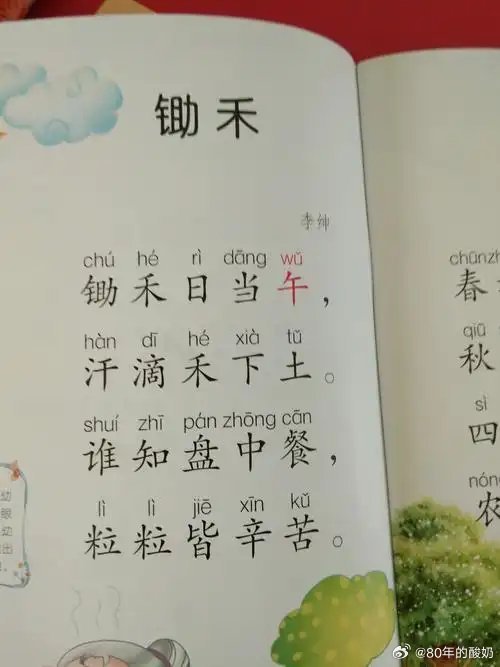 锄禾
李绅
chú hé rì dāng wǔ
锄禾日当午，
hàn dī hé xià tǔ
汗滴禾下土。
shuí zhī pán zhōng cān
谁知盘中餐，
lì lì jiē xīn kǔ
粒粒皆辛苦。
春
qiū
秋
sì
四
农
幼
眼
幼
出
@80年的酸奶